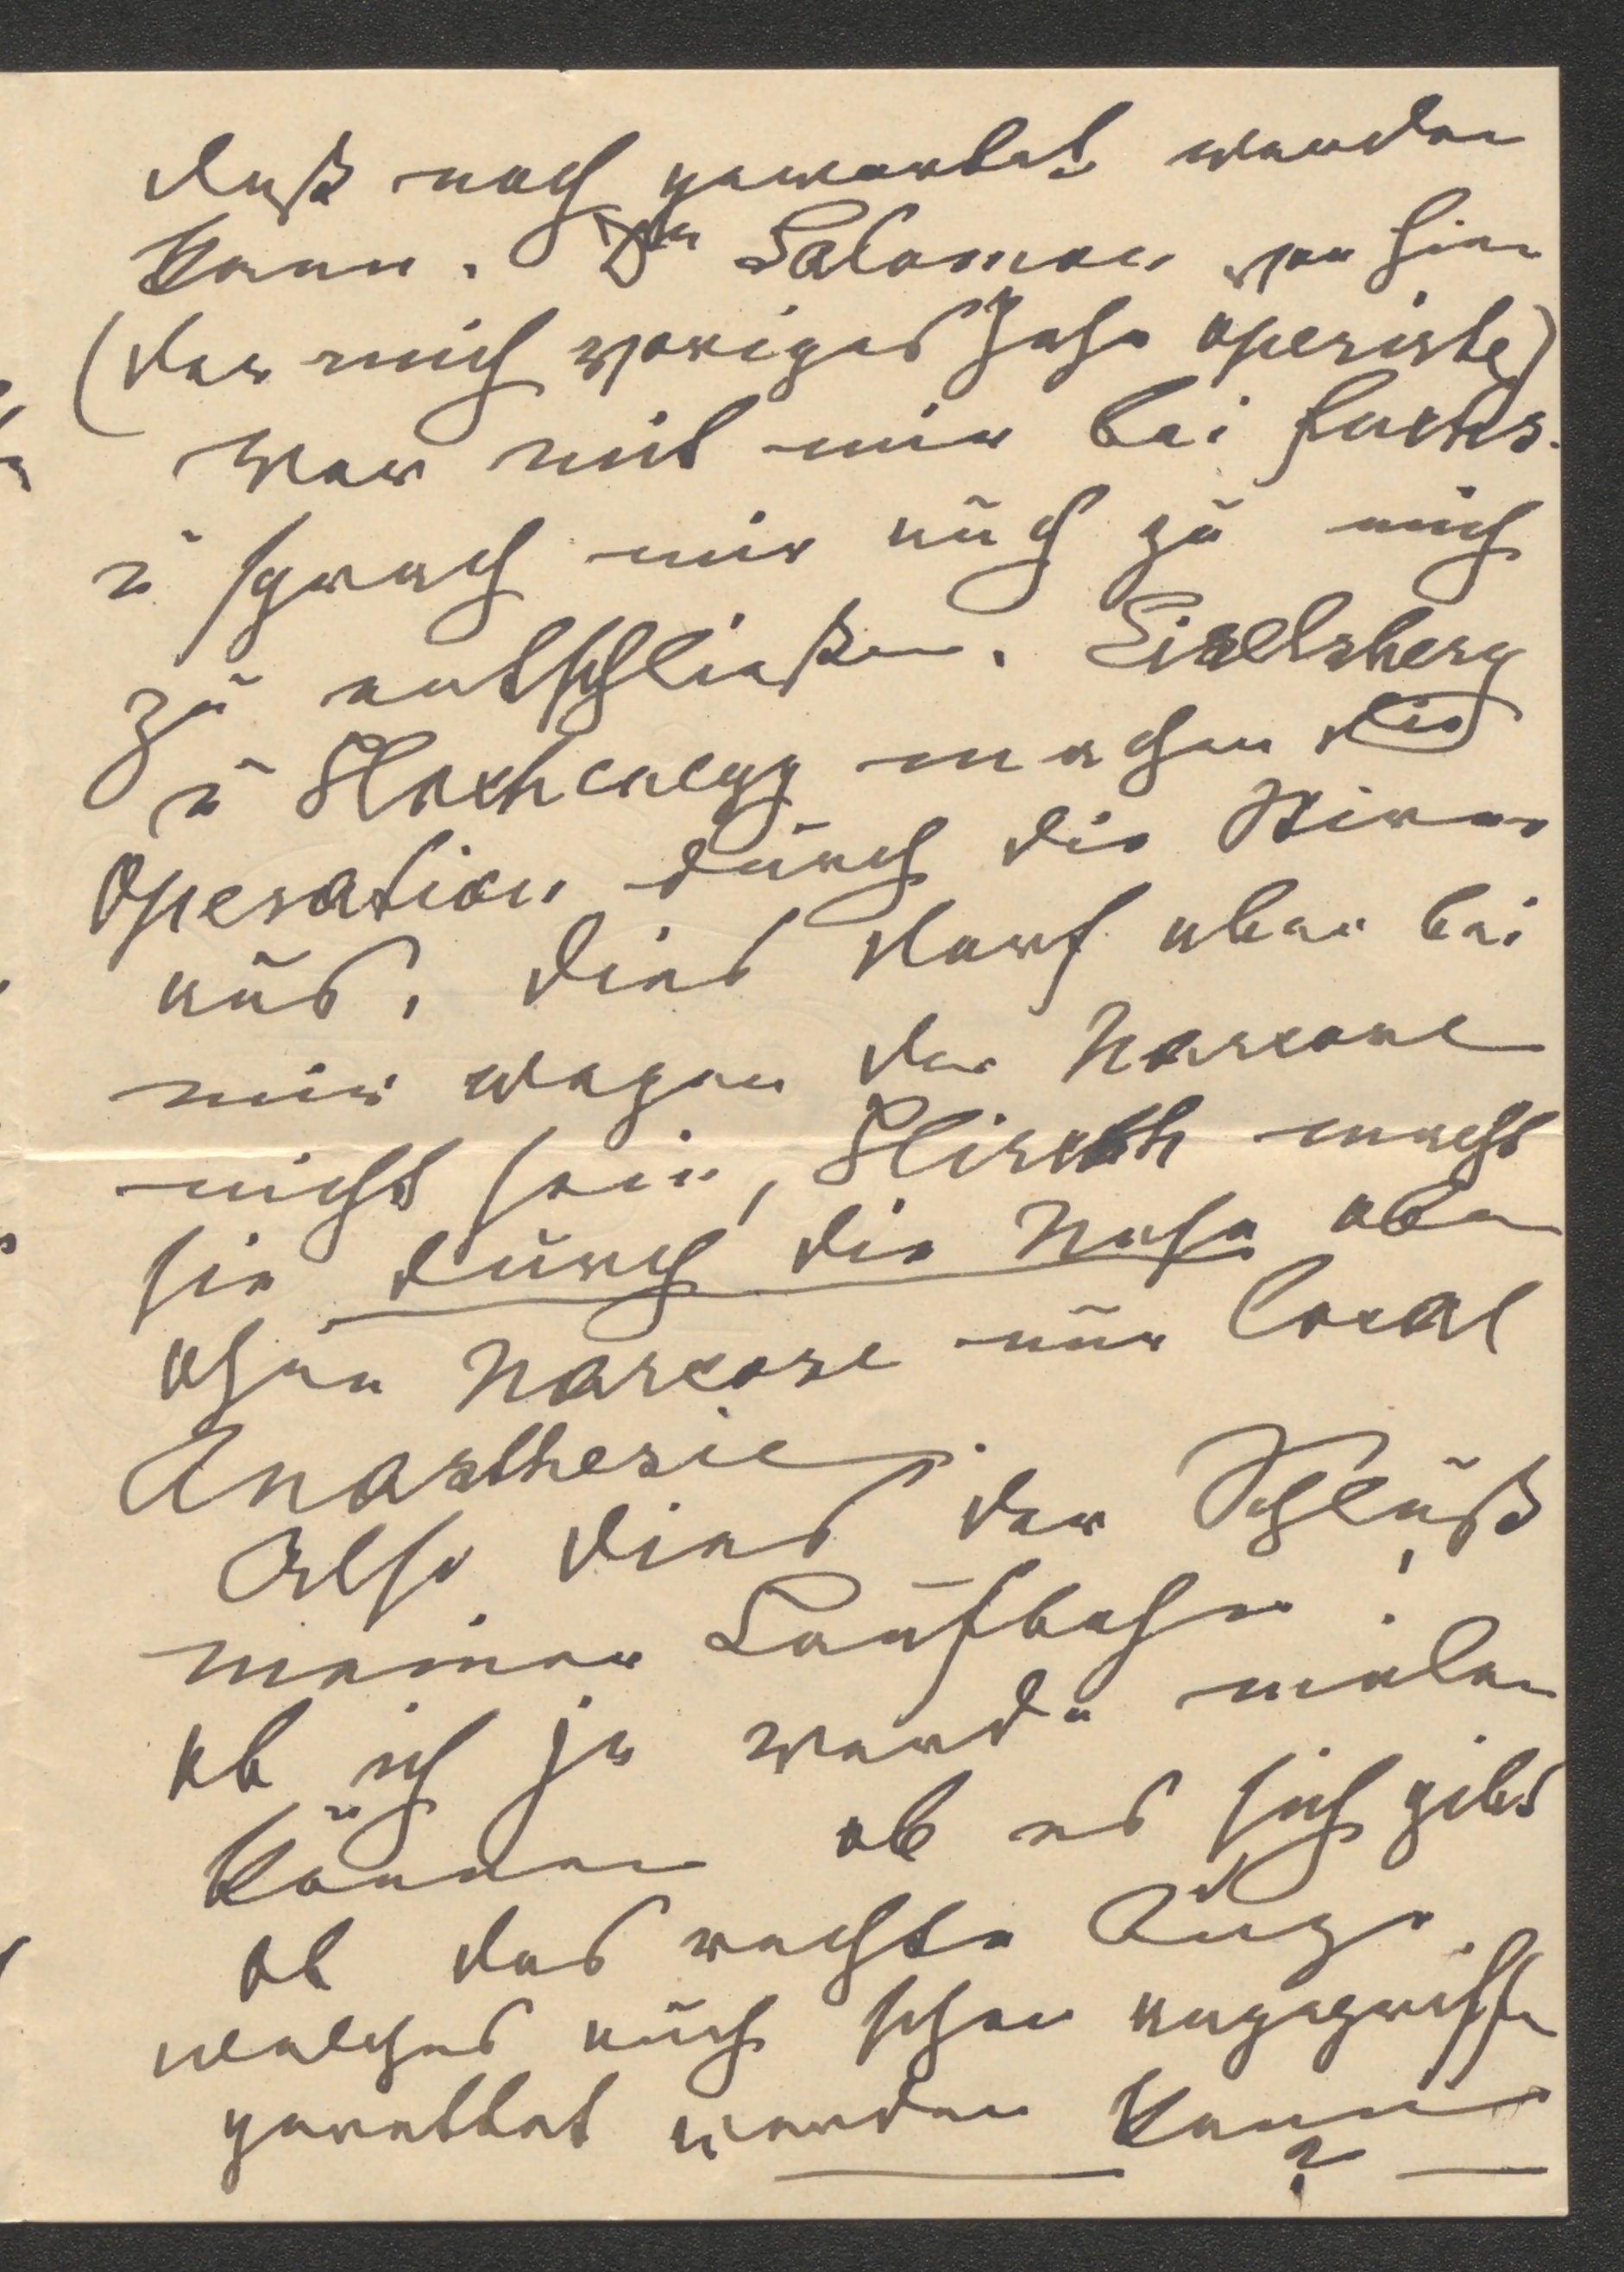 daß noch gewartet werden
kann. Dr Salomon von hier
(der mich voriges Jahr operirte)
war mit mir bei Fuchs.
ü sprach mir auch zu mich
zu entschließen. Eiselsberg
ü Hochenegg machen die
Operation durch die Stirne
aus. dies darf aber bei
mir wegen der Narcose
nicht sein, Hirsch macht
sie durch die Nase aber
ohne Narcose nur local
Anasthesie.
Also dies der Schluß
meiner Laufbahn!
ob ich je werde malen
können ob es sich gibt
ob das rechte Auge
welches auch schon angegriffen
gerettet werden kann
?